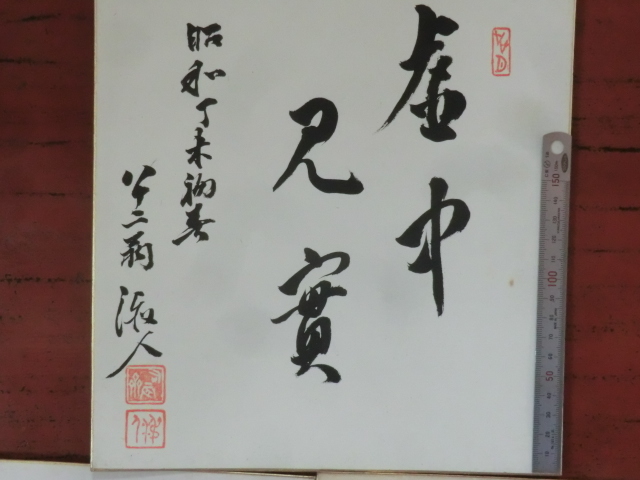 虚中
見實
昭和丁未初春
八十二翁 浪人
150
100
50